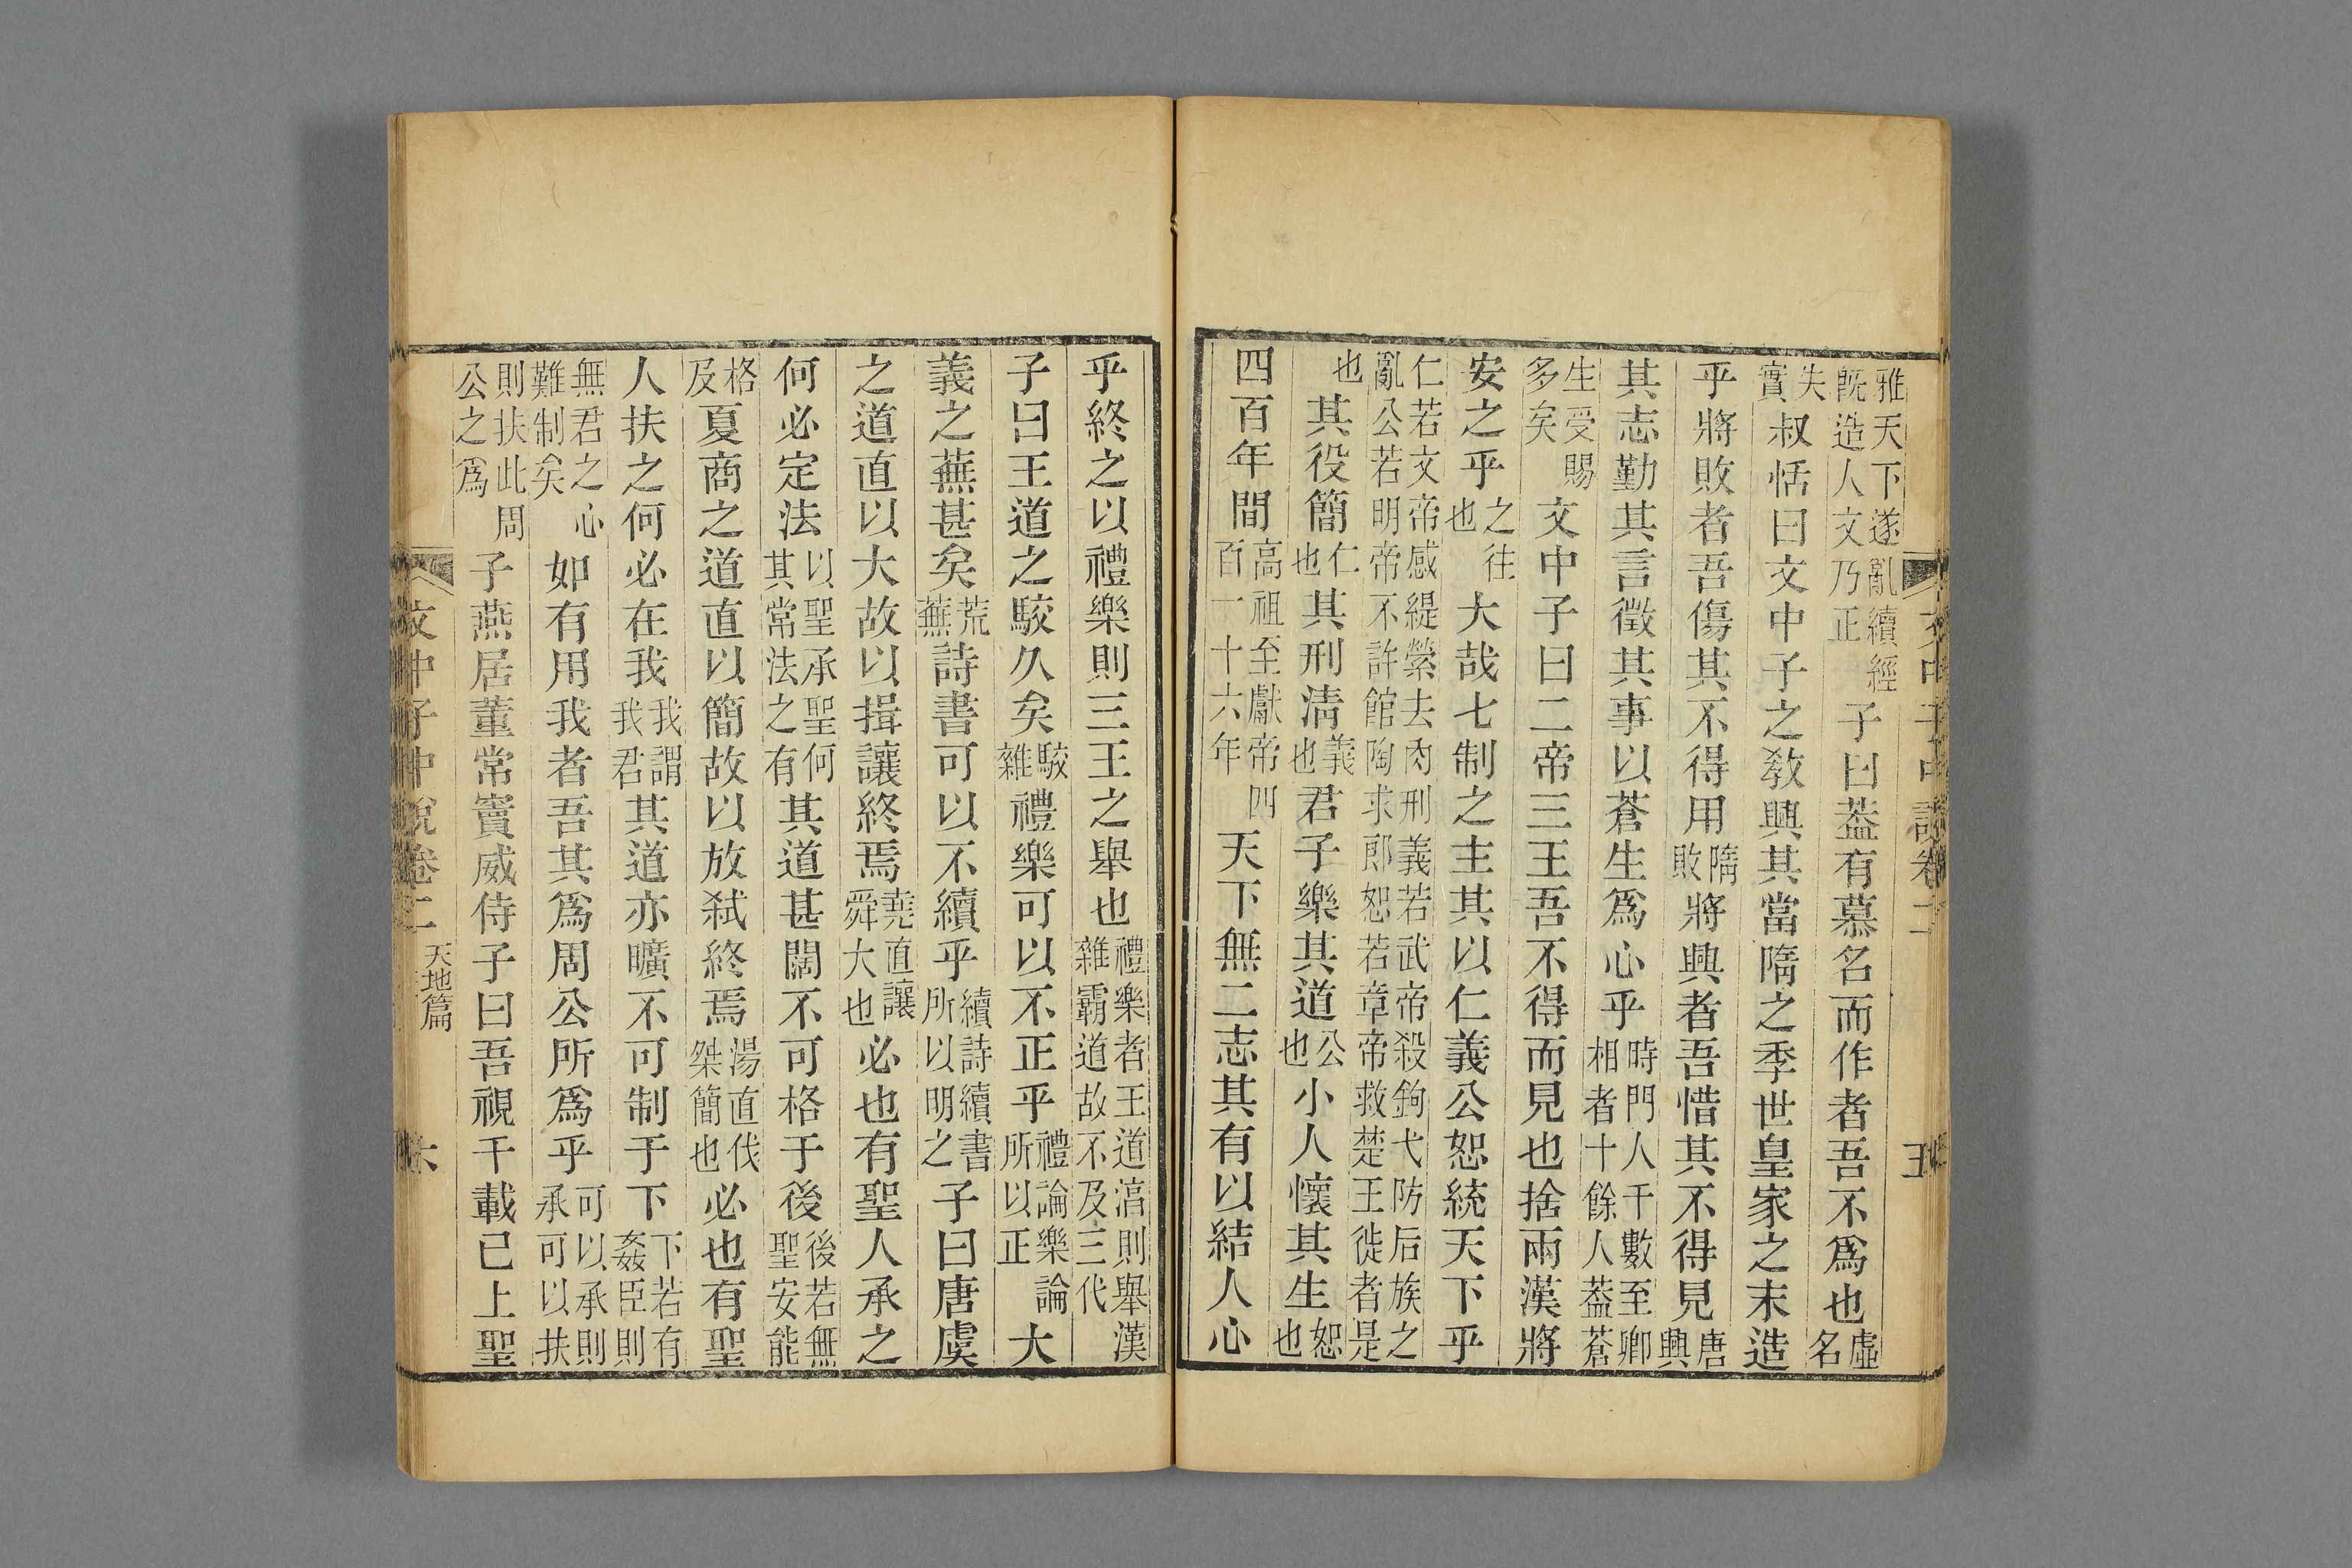 文中子中說卷二
五
雅天下遂亂續經既造人文乃正子曰葢有慕名而作者吾不爲也虛名
失實叔恬曰文中子之敎興其當隋之季世皇家之末造
乎將敗者吾傷其不得用隋敗將興者吾惜其不得見唐興
其志勤其言徵其事以蒼生爲心乎時門人千數至卿相者十餘人葢蒼
生受賜多矣文中子曰二帝三王吾不得而見也捨兩漢將
安之乎之往也大哉七制之主其以仁義公恕統天下乎
仁若文帝感緹縈去肉刑義若武帝殺鉤弋防后族之亂公若明帝不許館陶求郎恕若章帝救楚王徙者是
也其役簡仁也其刑淸義也君子樂其道公也小人懷其生恕也
四百年間高祖至獻帝四百一十六年天下無二志其有以結人心
乎終之以禮樂則三王之舉也禮樂者王道湻則舉漢雜霸道故不及三代
子曰王道之駮久矣駮雜禮樂可以不正乎禮論樂論所以正大
義之蕪甚矣荒蕪詩書可以不續乎續詩續書所以明之子曰唐虞
之道直以大故以揖讓終焉堯直讓舜大也必也有聖人承之
何必定法以聖承聖何其常法之有其道甚闊不可格于後後若無聖安能
格及夏商之道直以簡故以放弒終焉湯直伐桀簡也必也有聖
人扶之何必在我我謂我君其道亦曠不可制于下下若有姦臣則
無君之心難制矣如有用我者吾其爲周公所爲乎可以承則承可以扶
則扶此周公之爲子燕居董常竇威侍子曰吾視千載已上聖
文中子中說卷二
天地篇
六